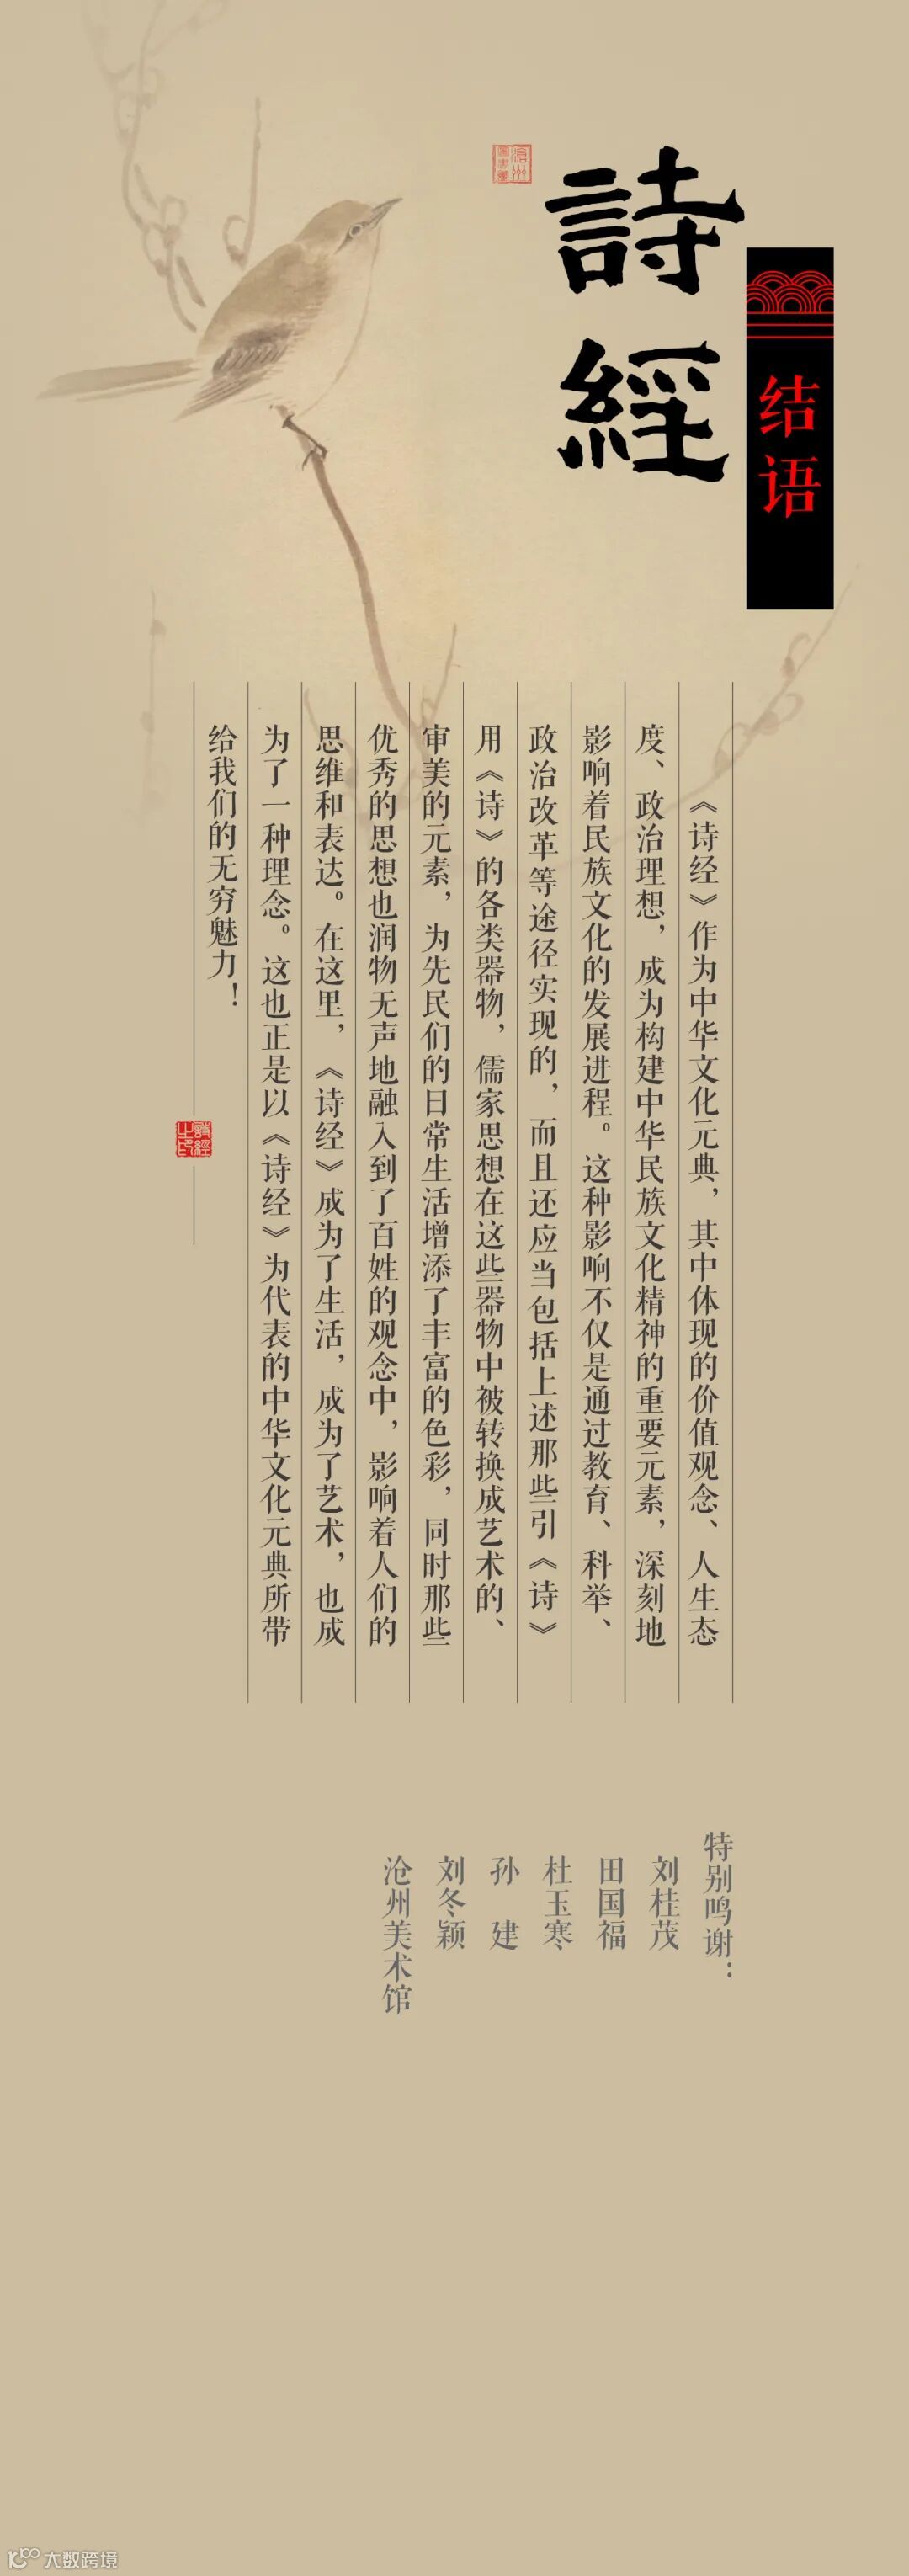 詩經
结语
《诗经》作为中华文化元典，其中体现的价值观念、人生态
度、政治理想，成为构建中华民族文化精神的重要元素，深刻地
影响着民族文化的发展进程。这种影响不仅是通过教育、科举、
政治改革等途径实现的，而且还应当包括上述那些引《诗》
用《诗》的各类器物，儒家思想在这些器物中被转换成艺术的、
审美的元素，为先民们的日常生活增添了丰富的色彩，同时那些
优秀的思想也润物无声地融入到了百姓的观念中，影响着人们的
思维和表达。在这里，《诗经》成为了生活，成为了艺术，也成
为了一种理念。这也正是以《诗经》为代表的中华文化元典所带
给我们的无穷魅力！
詩經之印
特别鸣谢：
刘桂茂
田国福
杜玉寒
孙 建
刘冬颖
沧州美术馆
大数跨境